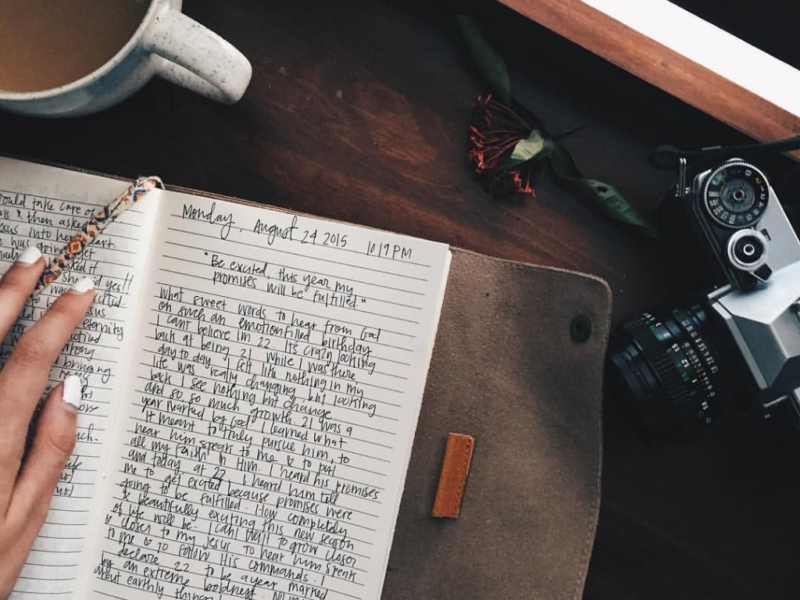 ould take care of
& then asked
esus into her heart.
Monday, August 24 2015 10:19 PM
"Be excited, this year my
promises will be fulfilled"
What sweet words to hear from God
on such an emotionfilled birthday
I cant believe Im 22. Its crazy looking
back at being 21. While I was there,
day to day, I felt like nothing in my
life was really changing. but looking
back I see nothing but change.
and so so much growth. 21 was a
year marked by God. I learned what
It meant to truly pursue him, to
hear him speak to me & to put
all my faith in Him. I heard his promises
and today at 22, I heard him tell
me to get excited because promises were
going to be fulfilled. How completely
& beautifully exciting this new season
of life will be. I cant wait to grow closer
& closer to my Jesus to hear him speak
to me & to follow His commands. I
declare 22 to be a year marked
by an extreme boldness.
about earthly things